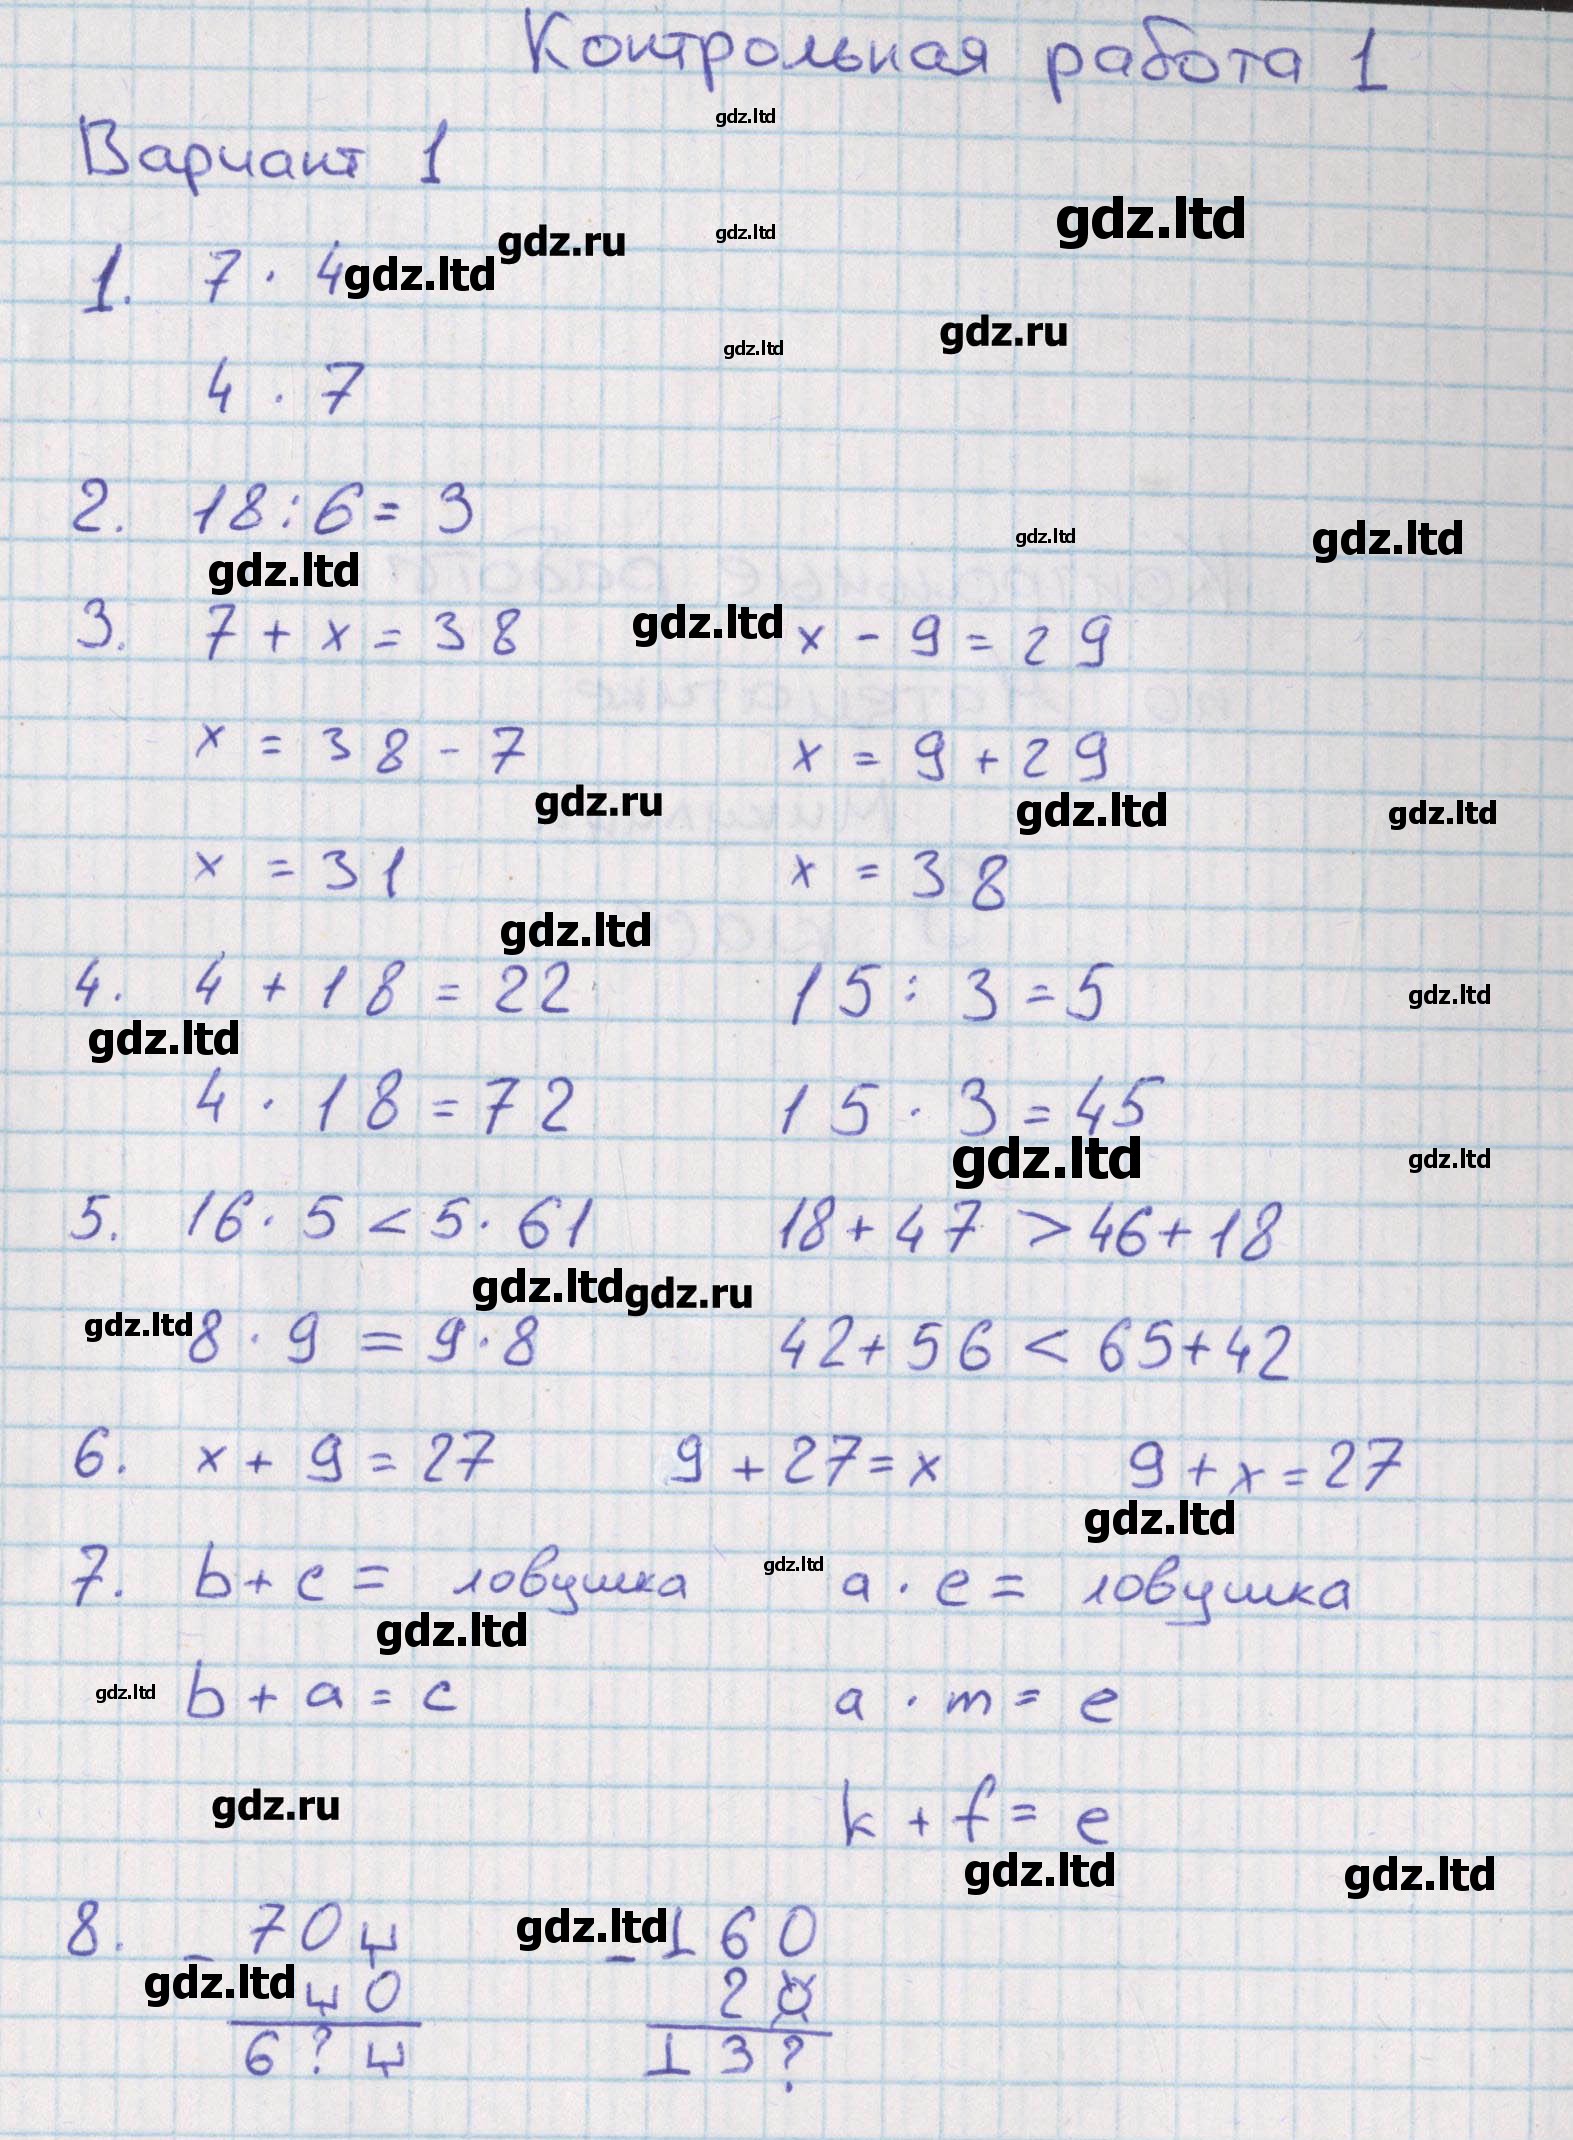 Контрольная работа 1
gdz.ltd
Вариант 1
gdz.ltd
gdz.ru gdz.ltd
1. 7 · 4 gdz.ltd
gdz.ru
gdz.ltd
4 · 7
2. 18 : 6 = 3
gdz.ltd gdz.ltd
gdz.ltd
3. 7 + x = 38 gdz.ltd x - 9 = 29
x = 38 - 7 x = 9 + 29
gdz.ru gdz.ltd gdz.ltd
x = 31 x = 38
gdz.ltd
4. 4 + 18 = 22 15 : 3 = 5 gdz.ltd
gdz.ltd
4 · 18 = 72 15 · 3 = 45
gdz.ltd gdz.ltd
5. 16 · 5 < 5 · 61 18 + 47 > 46 + 18
gdz.ltd gdz.ru
gdz.ltd 8 · 9 = 9 · 8 42 + 56 < 65 + 42
6. x + 9 = 27 9 + 27 = x 9 + x = 27
gdz.ltd
7. b + c = ловушка gdz.ltd a · e = ловушка
gdz.ltd
gdz.ltd b + a = c a · m = e
gdz.ru
k + f = e
gdz.ltd gdz.ltd
8. - 70 gdz.ltd - 160
gdz.ltd 0 2
6 ? 13 ?